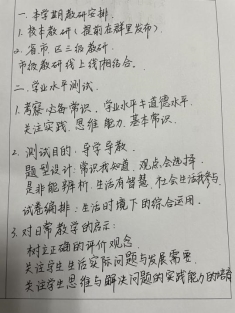 一.本学期教研安排.
1.校本教研(提前在群里发布)
2.省市区三级教研.
市级教研线上线下相结合.
二.学业水平测试.
1.考察:必备常识.学业水平与道德水平.
关注实践.思维能力.基本常识.
2.测试目的:导学导教.
题型设计:常识我知道.观点会选择.
是非能辨析.生活有智慧.社会生活我参与.
试卷编排:生活时境下的综合运用.
3.对日常教学的启示:
树立正确的评价观念.
关注学生生活实际问题与发展需要.
关注学生思维与解决问题的实践能力的培育